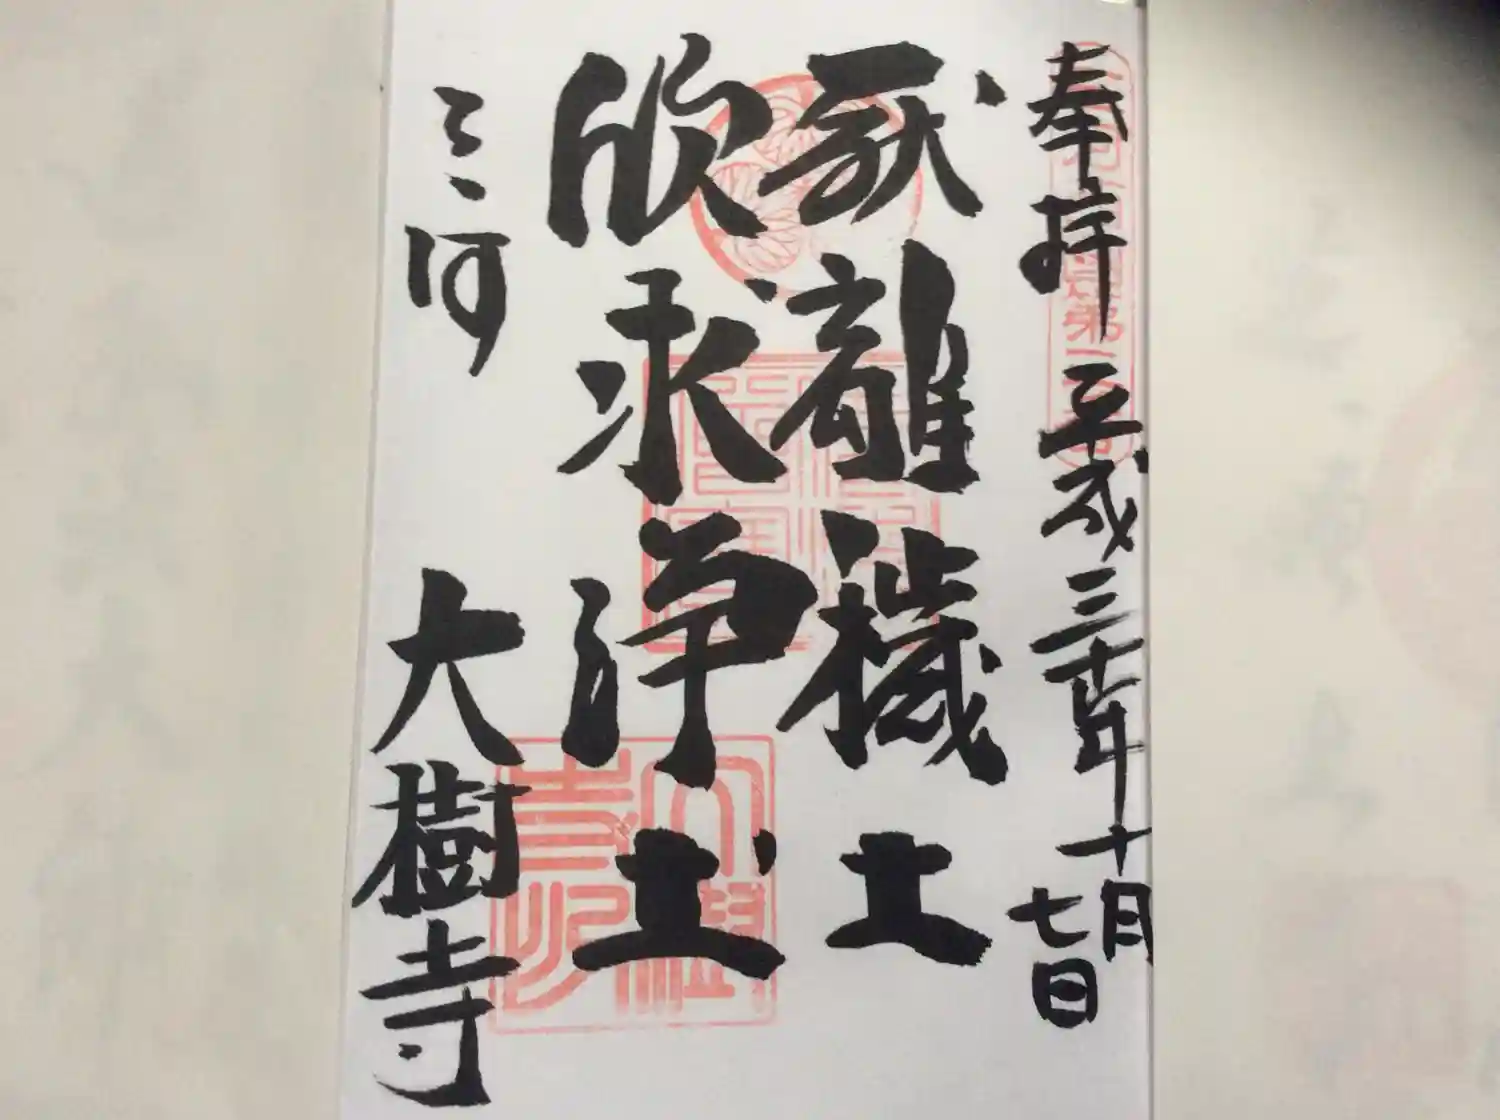 奉拝 平成三十年十月
七日
厭離穢土
欣求浄土
三河 大樹寺